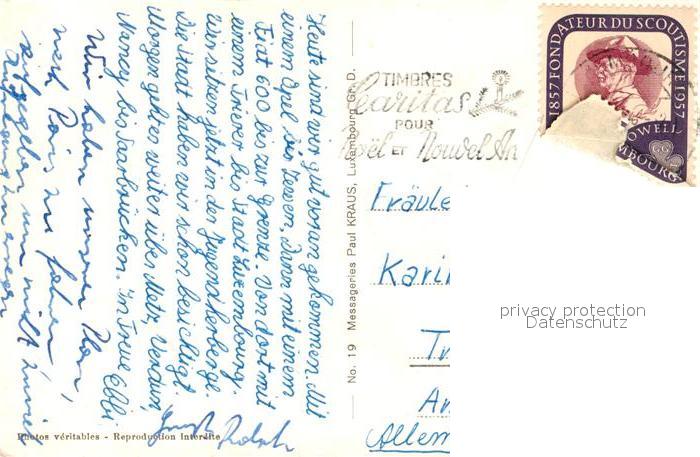 Heute sind wir gut voran gekommen. Mit
einem Opel bis Bessem. Dann mit einem
Fiat 600 bis zur Grenze. Von dort mit
einem Trierer bis Stadt Luxembourg.
Wir sitzen jetzt in der Jugendherberge.
Die Stadt haben wir schon besichtigt.
Morgen geht es weiter über Metz, Verdun,
Nancy bis Saarbrücken. In Treue Ebbi
Wir haben unseren Plan,
nach Paris zu fahren,
aufgegeben um nicht
Gruß Rolph
Photos véritables - Reproduction Interdite
No. 19 Messageries Paul KRAUS, Luxembourg Gr. D.
TIMBRES
Caritas
POUR
Noël ET Nouvel An
1857 FONDATEUR DU SCOUTISME 1957
OWELL
MBOURG
Fräule
Karin
Tr
Allem
privacy protection
Datenschutz